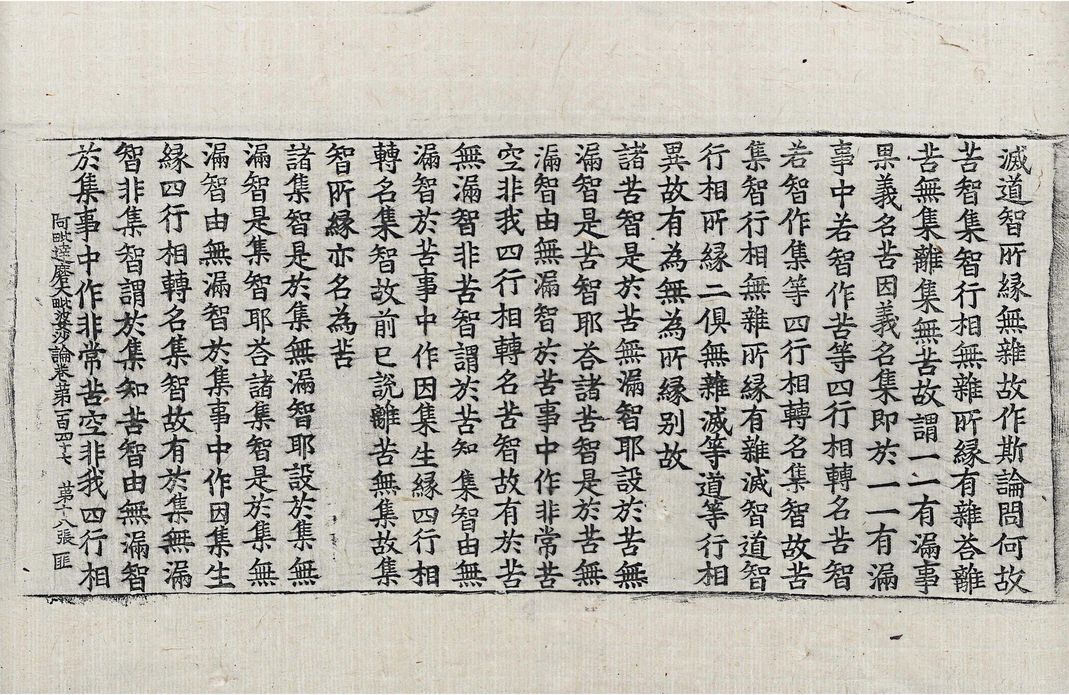 滅道智所縁無雜故作斯論問何故
苦智集智行相無雜所縁有雜荅離
苦無集離集無苦故謂一一有漏事
果義名苦因義名集即於一一有漏
事中若智作苦等四行相轉名苦智
若智作集等四行相轉名集智故苦
集智行相無雜所縁有雜滅智道智
行相所縁二俱無雜滅等道等行相
異故有為無為所縁别故
諸苦智是於苦無漏智耶設於苦無
漏智是苦智耶荅諸苦智是於苦無
漏智由無漏智於苦事中作非常苦
空非我四行相轉名苦智故有於苦
無漏智非苦智謂於苦知集智由無
漏智於苦事中作因集生縁四行相
轉名集智故前已說離苦無集故集
智所縁亦名為苦
諸集智是於集無漏智耶設於集無
漏智是集智耶荅諸集智是於集無
漏智由無漏智於集事中作因集生
縁四行相轉名集智故有於集無漏
智非集智謂於集知苦智由無漏智
於集事中作非常苦空非我四行相
阿毗達磨大毗婆沙論卷第一百四十七 第十八張 匪